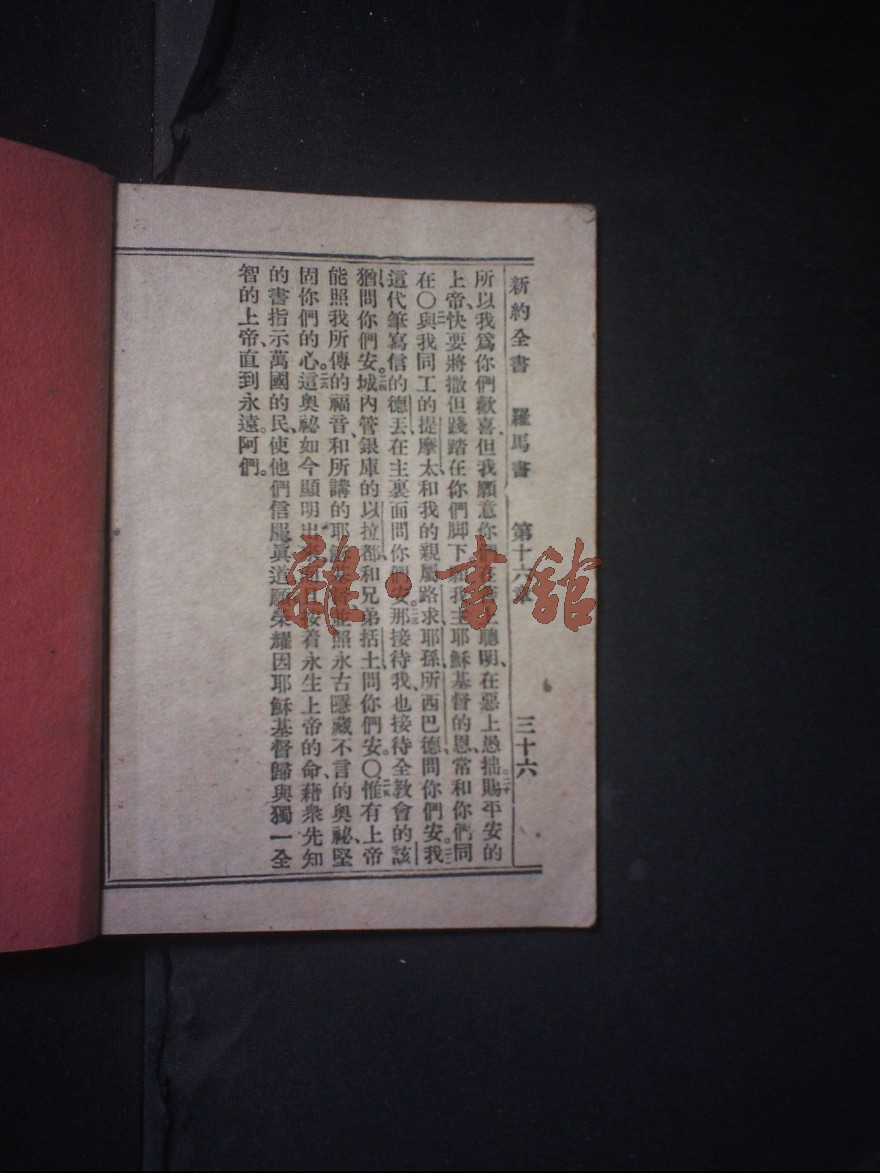 新約全書 羅馬書 第十六章 三十六
所以我爲你們歡喜、但我願意你們在善上聰明、在惡上愚拙。二十賜平安的
上帝、快要將撒但踐踏在你們脚下、我主耶穌基督的恩、常和你們同
在〇二一與我同工的提摩太、和我的親屬路求、耶孫、所西巴德、問你們安。二二我
這代筆寫信的德丟、在主裏面問你們安。二三那接待我、也接待全教會的該
猶、問你們安。二四城內管銀庫的以拉都、和兄弟括土、問你們安。〇二五惟有上帝
能照我所傳的福音、和所講的耶穌基督、並照永古隱藏不言的奧祕、堅
固你們的心。二六這奧祕如今顯明出來、按着永生上帝的命、藉衆先知
的書指示萬國的民、使他們信服眞道、願榮耀因耶穌基督歸與獨一全
智的上帝、直到永遠。阿們。
雜·書館